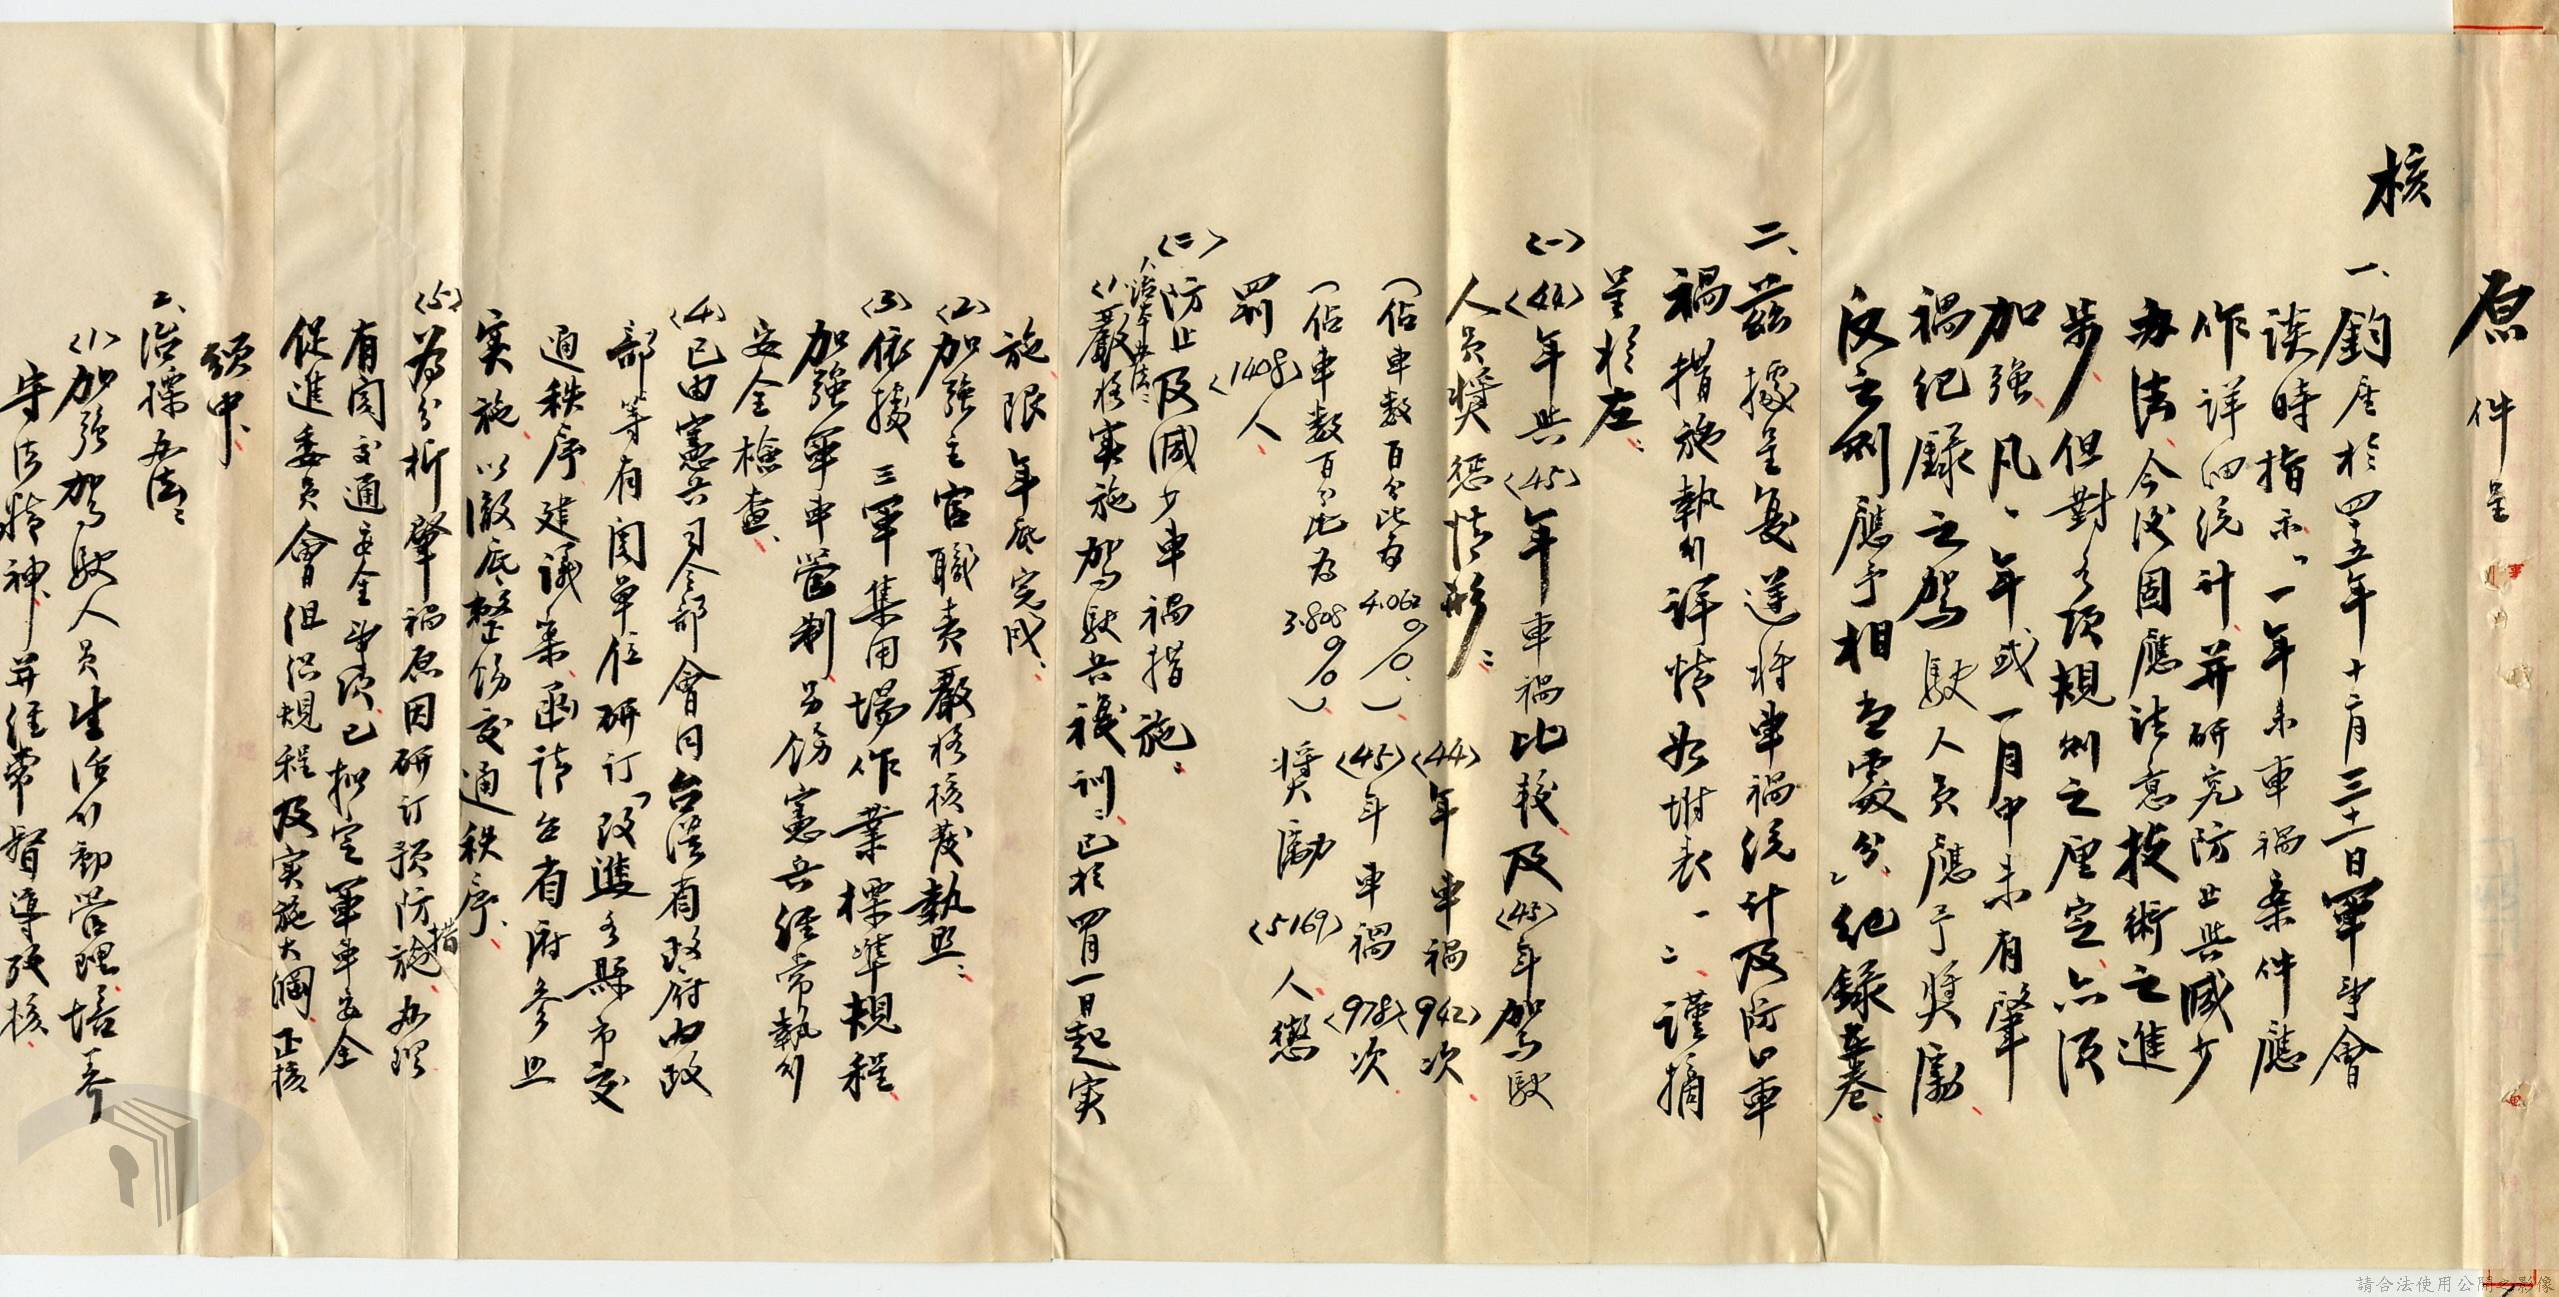 原件呈
核
一、鈞座於四十五年十二月三十一日軍事會
談時指示「一年來車禍案件應
作詳細統計，并研究防止與減少
办法，今後固應注意技術之進
步，但對各項規則之厘定，亦須
加強，凡一年或一月中未有肇
禍紀錄之駕駛人員應予獎勵，
反之則應予相當處分」紀錄在卷。
二、茲據呈復遵將車禍統計及防止車
禍措施執行詳情如附表一、二，謹摘
呈於左：
〈一〉〈44〉年與〈45〉年車禍比較及〈45〉年駕駛
人員獎懲情形：〈44〉年車禍〈942〉次
（佔車數百分比為4.062%）〈45〉年車禍〈978〉次
（佔車數百分比為3.808%）獎勵〈5169〉人，懲
罰〈1408〉人。
〈二〉防止及減少車禍措施：
1、治本办法：
〈1〉嚴格實施駕駛兵複訓，已於四月一日起实
施，限年底完成。
〈2〉加強主官職責，嚴格核發執照。
〈3〉依據三軍集用場作業標準規程，
加強軍車營制，另飭憲兵經常執行
安全檢查。
〈4〉已由憲兵司令部會同台灣省政府內政
部等有関單位研訂「改進各縣市交
通秩序建議案」函請台省府參照
实施，以澈底整飭交通秩序。
〈5〉為分析肇禍原因研訂預防措施，办理
有関交通安全事項，已擬定軍車安全
促進委員會組織規程及实施大綱，正核
頒中。
二、治標办法：
〈1〉加強駕駛人員生活行動管理，培養
守法精神，并經常督導考核。
請合法使用公開之影像